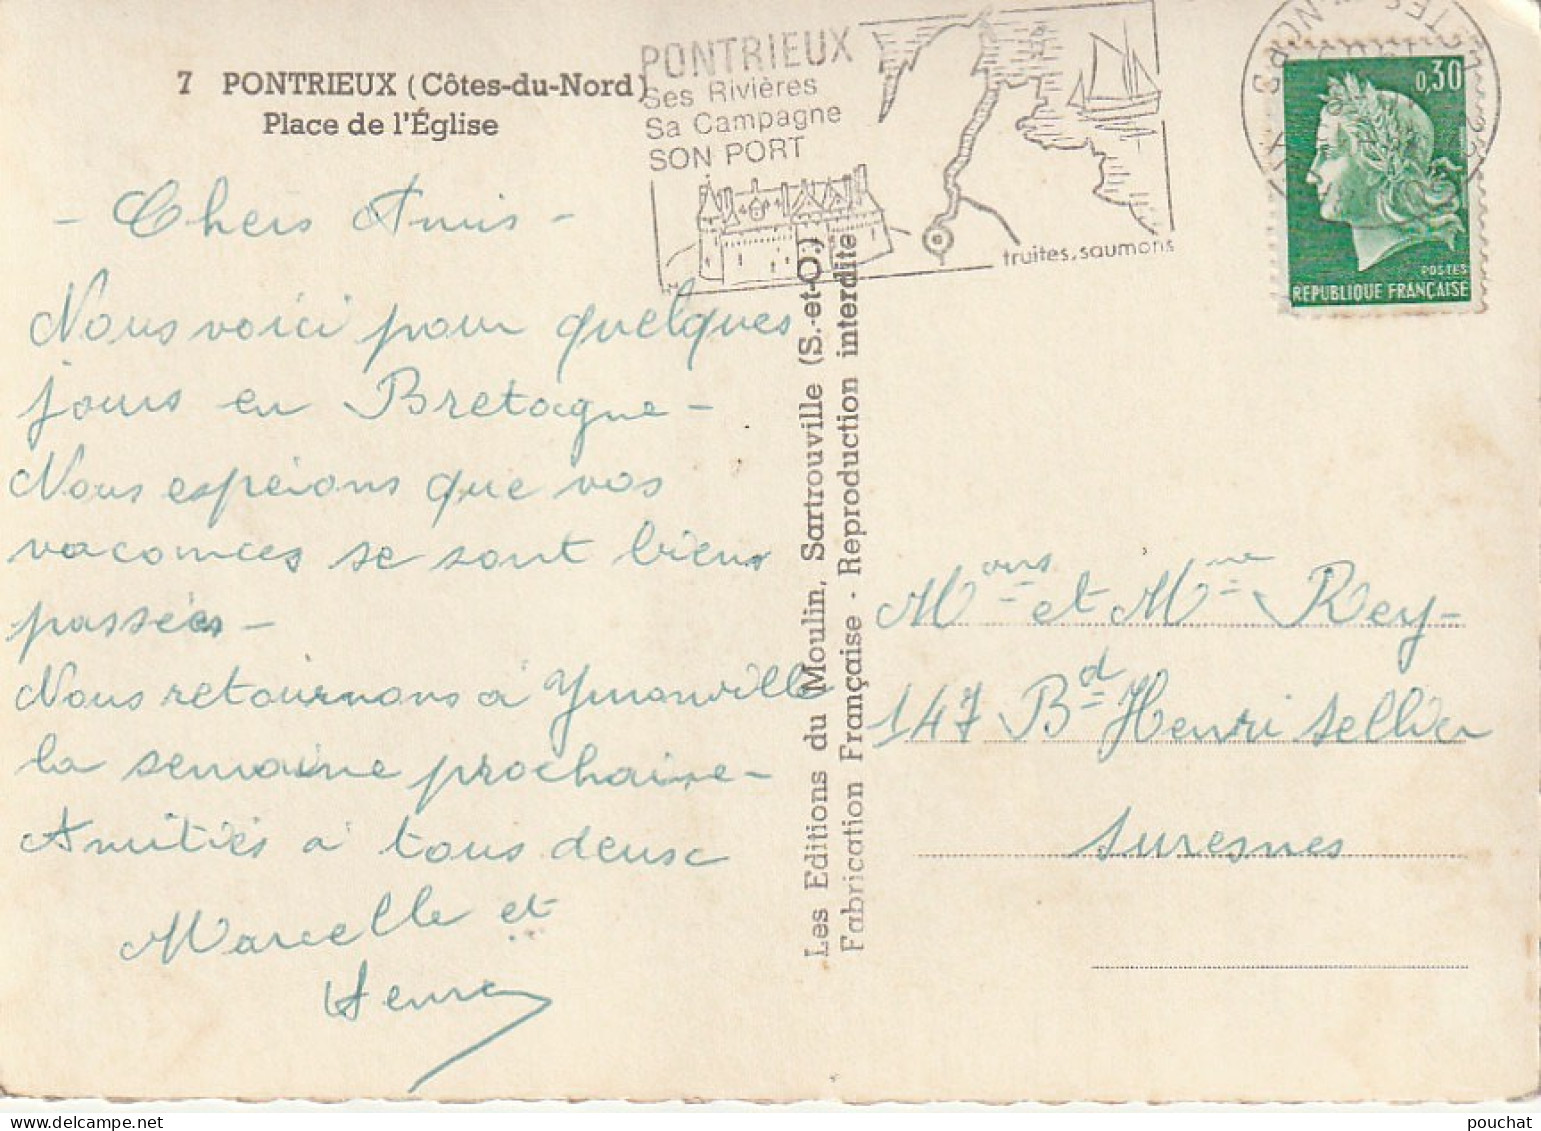 7 PONTRIEUX (Côtes-du-Nord)
Place de l'Église
PONTRIEUX
Ses Rivières
Sa Campagne
SON PORT
truites, saumons
0,30
POSTES
REPUBLIQUE FRANÇAISE
- Chers Amis -
Nous voici pour quelques
jours en Bretagne -
Nous espérons que vos
vacances se sont bien
passées -
Nous retournons à Ymonville
la semaine prochaine -
Amitiés à tous deux
Marcelle et
Les Editions du Moulin, Sartrouville (S.-et-O.)
Fabrication Française - Reproduction interdite
Mons et Mme Rey -
147 Bd Henri Sellier
Suresnes
pouchat